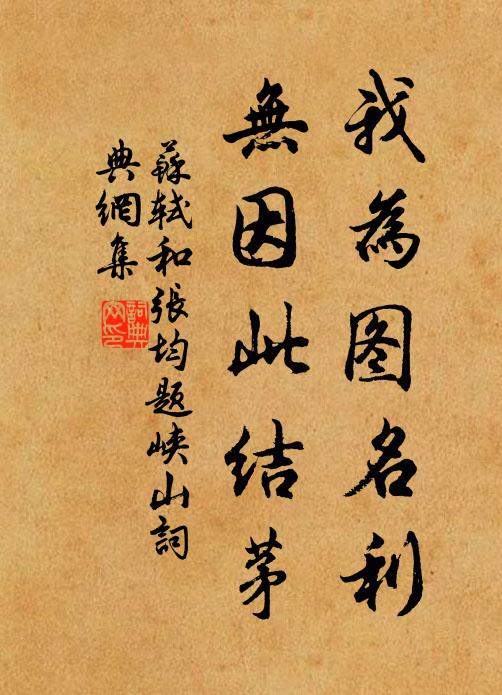 我為图名利
無因此结茅
蘇軾和張均題峡山詞
典網集
詞典
网印